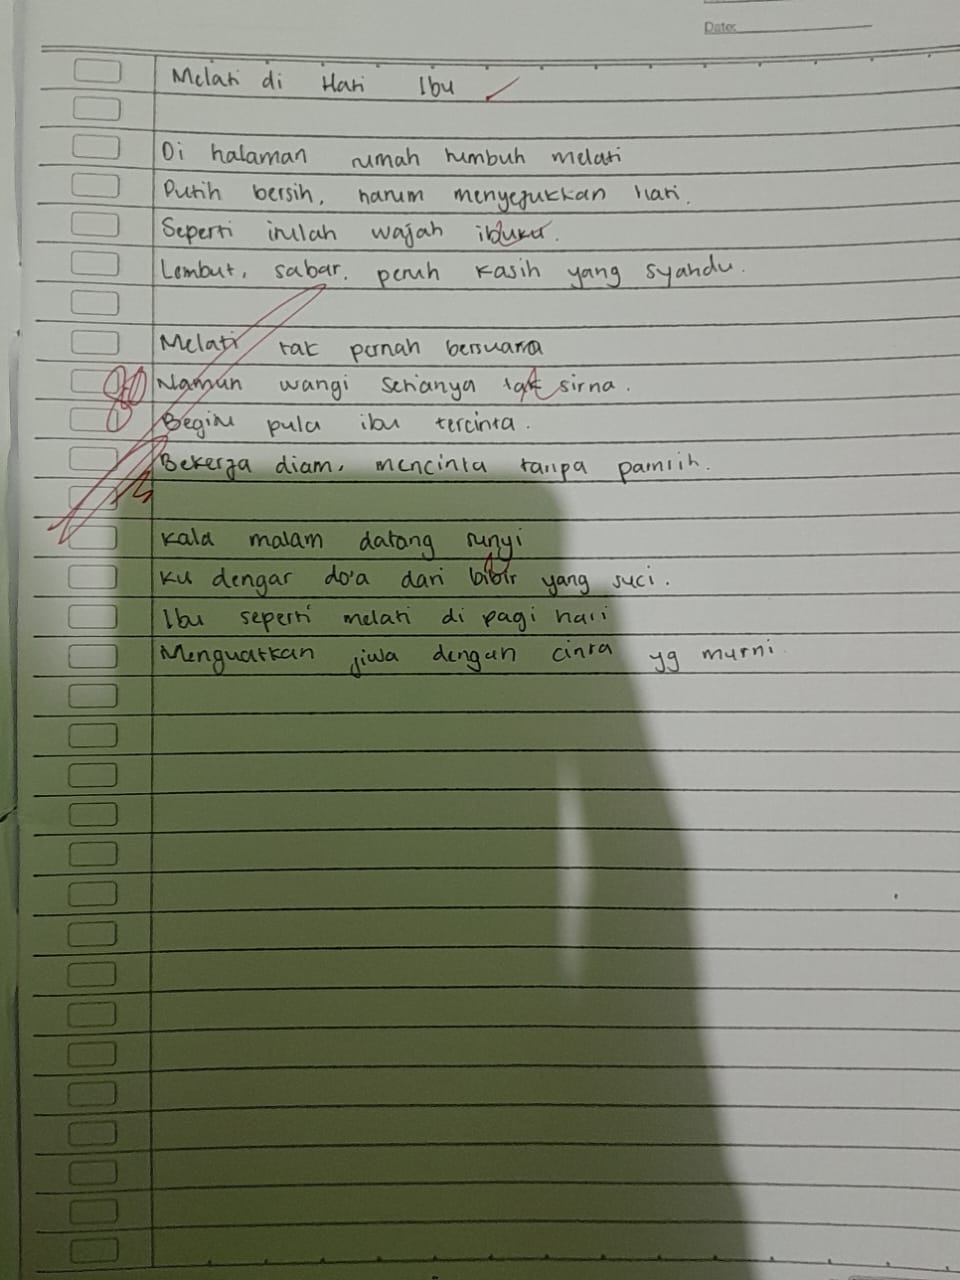 Date:
Melati di Hari Ibu
Di halaman rumah tumbuh melati
Putih bersih, harum menyejukkan hati.
Seperti itulah wajah ibuku.
Lembut, sabar, penuh kasih yang syahdu.
Melati tak pernah bersuara
80
Namun wangi setianya tak sirna.
Begitu pula ibu tercinta.
Bekerja diam, mencinta tanpa pamrih.
Kala malam datang sunyi
Ku dengar do'a dari bibir yang suci.
Ibu seperti melati di pagi hari
Menguatkan jiwa dengan cinta yg murni.